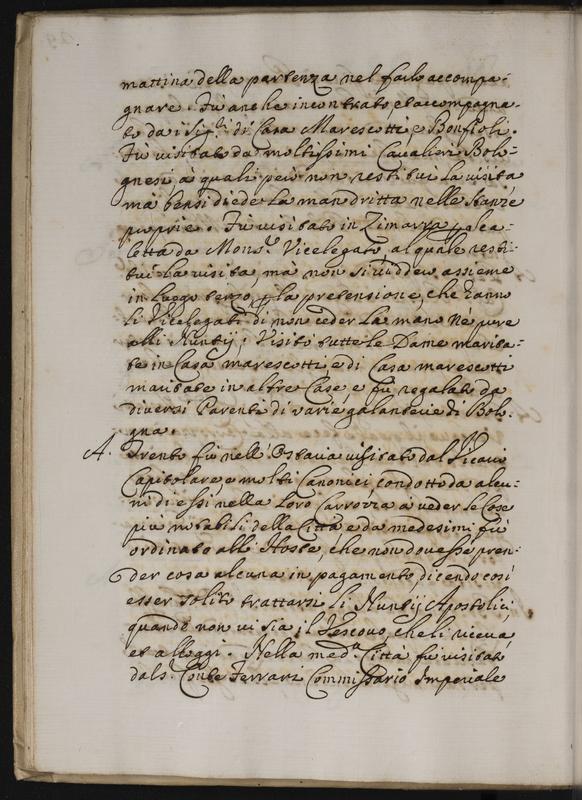 mattina della partenza nel farlo accompa-
gnare. Fù anche incontrato, et accompagna-
to da i Sig.ri di Casa Marescotti, e Bonfioli.
Fù visitato da moltissimi Cavalieri Bolo-
gnesi, à quali però non restitui la visita
mà bensi diede la man dritta nelle stanze
proprie. Fù visitato in Zimarra, p
letta da Mons.r Vicelegato, al quale resti-
tui la visita, mà non si viddero assieme
in luogo terzo p la pretensione, che hanno
li Vicelegati di non ceder la mano né pure
alli Nuntij; Visitò tutte le Dame marita-
te in Casa marescotti, e di Casa marescotti
maritate in altre Case, e fù regalato da
diversi Parenti di varie galanterie di Bolo-
gna.
A. Trento fù nell'Ostaria visitato dal Vicario
Capitolare, e molti Canonici condotto da alcu-
ni di essi nella loro Carrozza à veder le Cose
più notabili della Città e da medesimi fù
ordinato all'Hoste, che non dovesse pren-
der cosa alcuna in pagamento dicendo così
esser solito trattarsi li Nuntij Apostolici
quando non vi sia il Vescovo, che li riceva
et alloggi. Nella med.a Città fù visitato
dal S. Conte Ferrari Commissario Imperiale